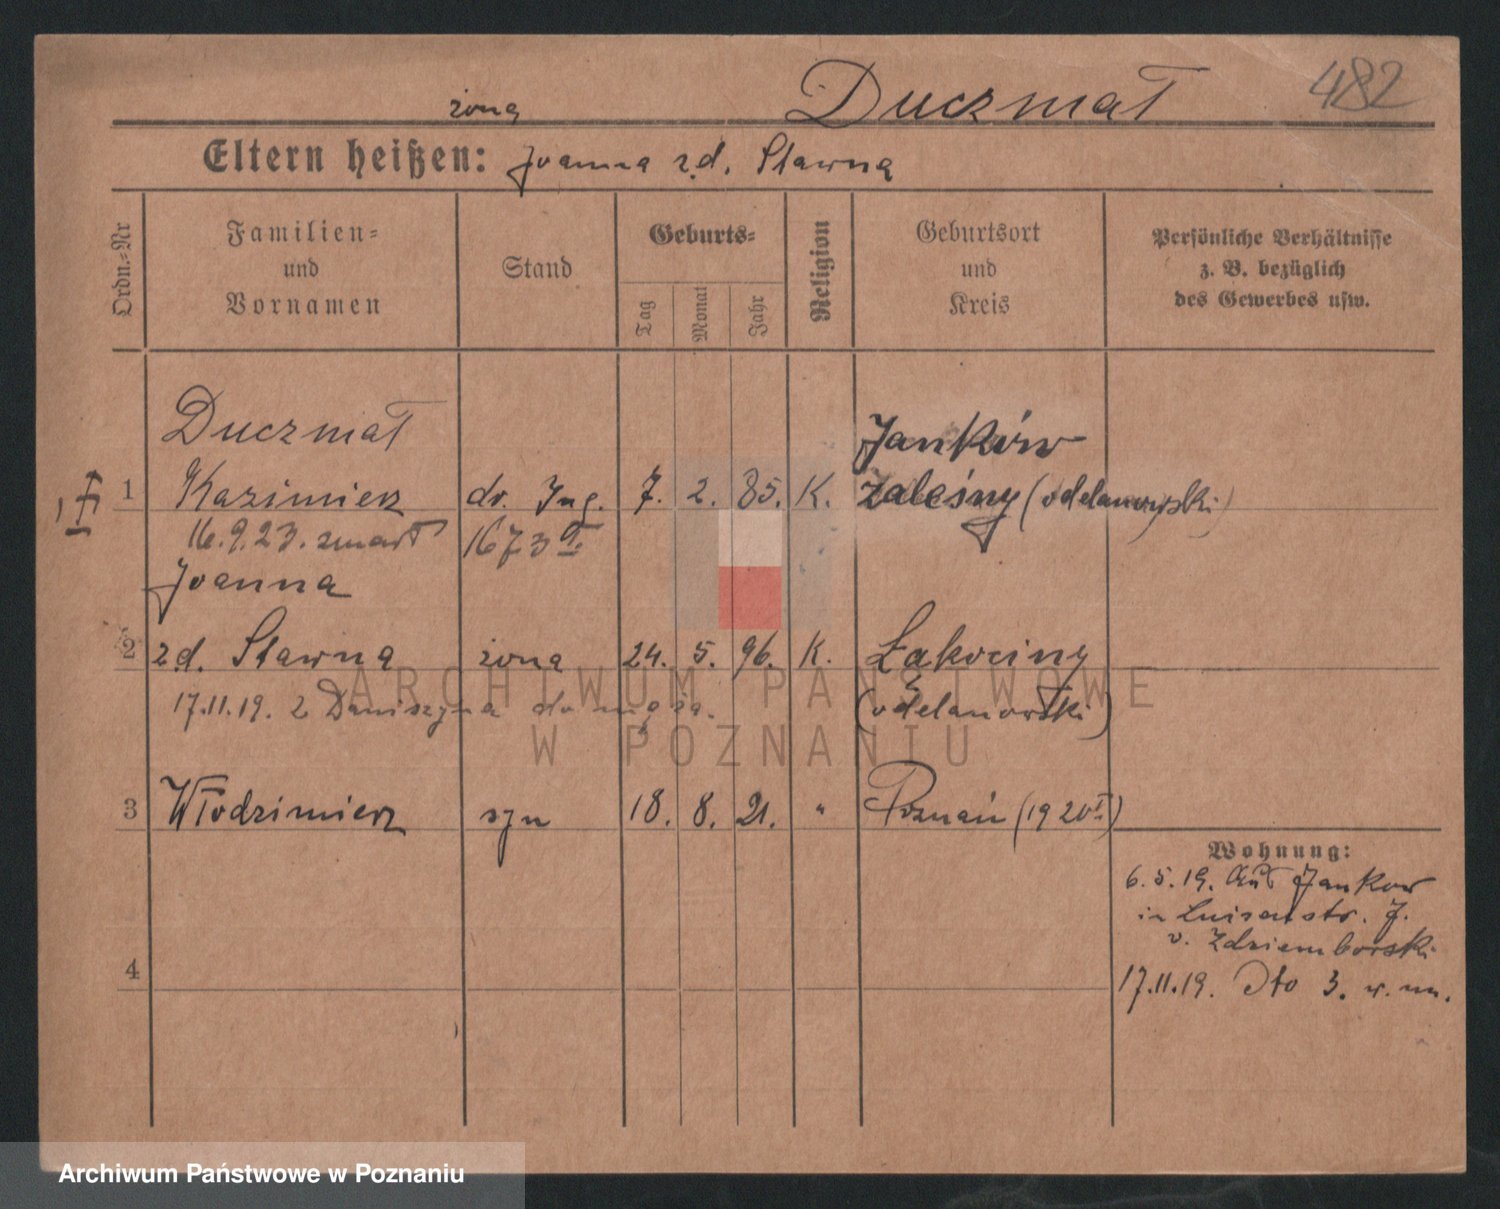 Duczmał 482
żona
Eltern heißen: Joanna zd. Sławna
Ordn.-Nr
Familien-
und
Vornamen
Stand
Geburts-
Tag
Monat
Jahr
Religion
Geburtsort
und
Kreis
Persönliche Verhältnisse
z. B. bezüglich
des Gewerbes usw.
Duczmał
1 Kazimierz dr. Ing. 7. 2. 85. K. Janków
zaleśny (odelanowski)
16.9.23. zmarł 1673
Joanna
2 zd. Sławna żona 24. 5. 96. K. Łąkociny
17.11.19. z Daniszyna do męża. (odelanowski)
3 Włodzimierz syn 18. 8. 21. " Poznań (1920 I)
Wohnung:
6.5.19. Aus Jankow
in Luisenstr. 7.
v. Zdziemborski
17.11.19. Dto 3. w. m.
4
ARCHIWUM PAŃSTWOWE
W POZNANIU
Archiwum Państwowe w Poznaniu